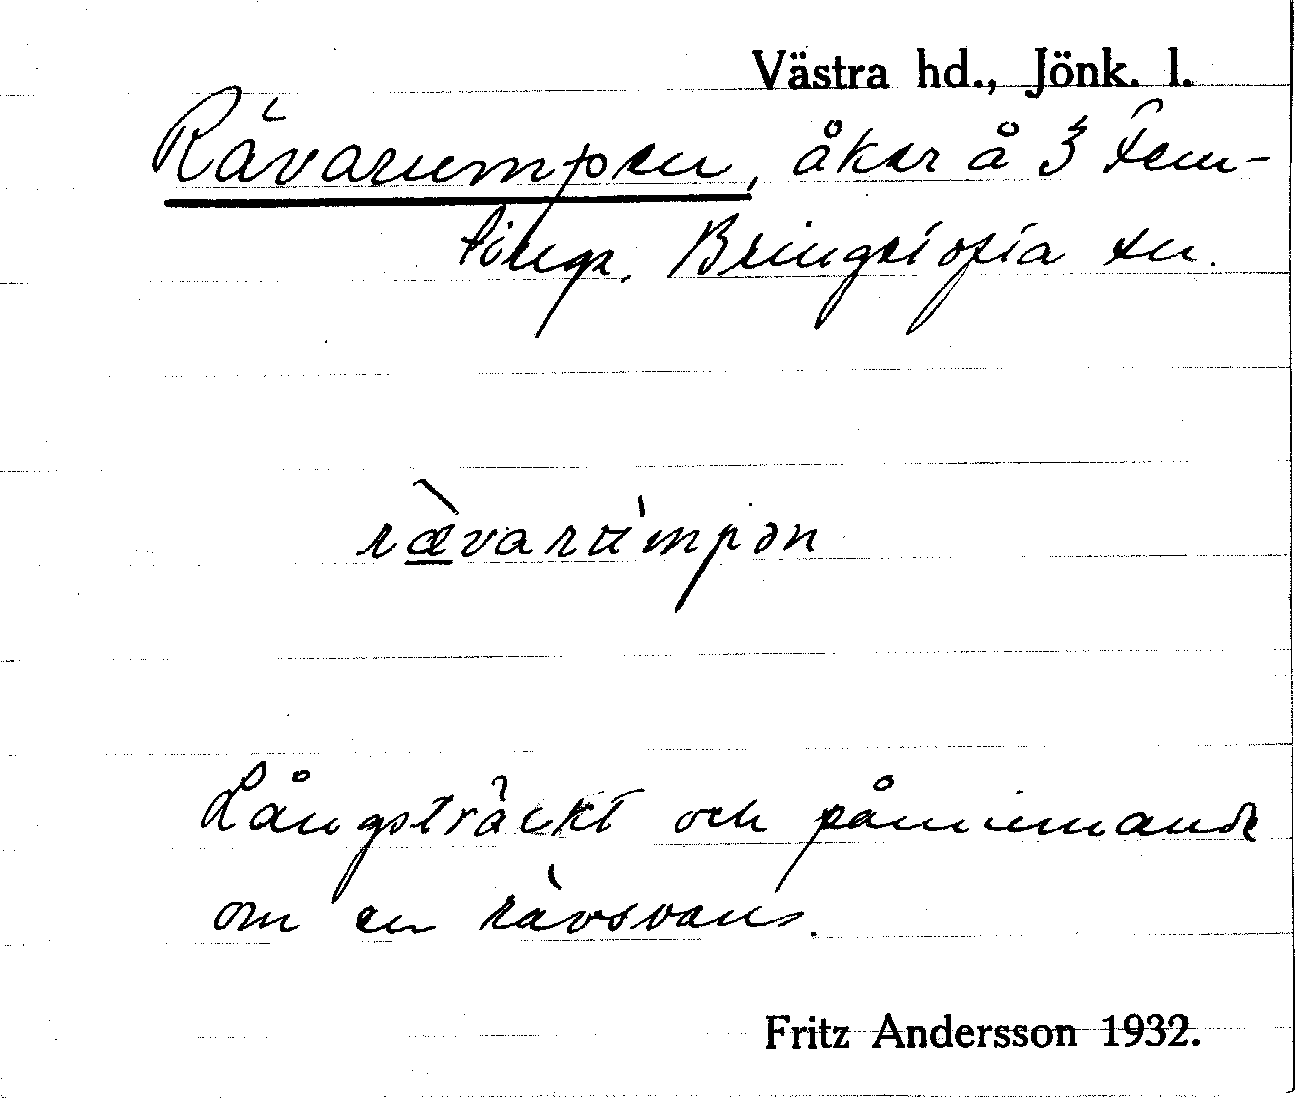 Västra hd., Jönk. l.
Rävarumpen, åker å 3 Fem-
tingr. Bringetofta sn.
rævarumpən
Långsträckt och påminnande
om en rävsvans.
Fritz Andersson 1932.